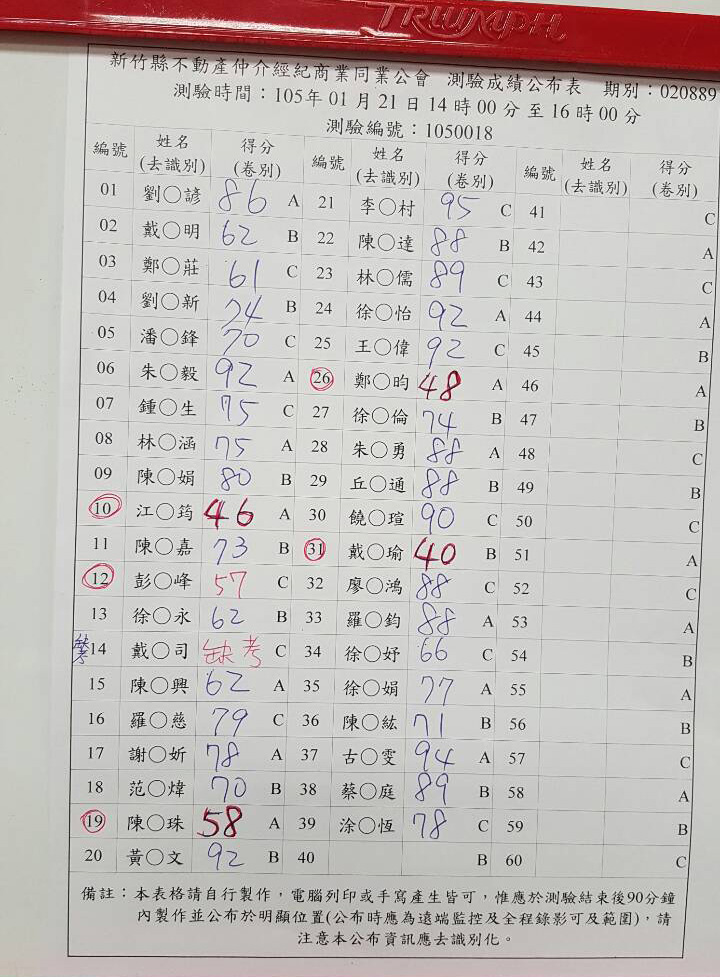 TRIUMPH
新竹縣不動產仲介經紀商業同業公會 測驗成績公布表 期別：020889
測驗時間：105年01月21日14時00分至16時00分
測驗編號：1050018
編號 姓名(去識別) 得分(卷別) 編號 姓名(去識別) 得分(卷別) 編號 姓名(去識別) 得分(卷別)
01 劉○諺 86 A 21 李○村 95 C 41 C
02 戴○明 62 B 22 陳○達 88 B 42 A
03 鄭○莊 61 C 23 林○儒 89 C 43 C
04 劉○新 74 B 24 徐○怡 92 A 44 A
05 潘○鋒 70 C 25 王○偉 92 C 45 B
06 朱○毅 92 A 26 鄭○昀 48 A 46 A
07 鍾○生 75 C 27 徐○倫 74 B 47 B
08 林○涵 75 A 28 朱○勇 88 A 48 C
09 陳○娟 80 B 29 丘○通 88 B 49 B
10 江○筠 46 A 30 饒○瑄 90 C 50 C
11 陳○嘉 73 B 31 戴○瑜 40 B 51 A
12 彭○峰 57 C 32 廖○鴻 88 C 52 C
13 徐○永 62 B 33 羅○鈞 88 A 53 A
14 戴○司 缺考 C 34 徐○妤 66 C 54 B
15 陳○興 62 A 35 徐○娟 77 A 55 A
16 羅○慈 79 C 36 陳○紘 71 B 56 B
17 謝○妡 78 A 37 古○雯 94 A 57 C
18 范○煒 70 B 38 蔡○庭 89 B 58 A
19 陳○珠 58 A 39 涂○恆 78 C 59 B
20 黃○文 92 B 40 B 60 C
備註：本表格請自行製作，電腦列印或手寫產生皆可，惟應於測驗結束後90分鐘
內製作並公布於明顯位置(公布時應為遠端監控及全程錄影可及範圍)，請
注意本公布資訊應去識別化。